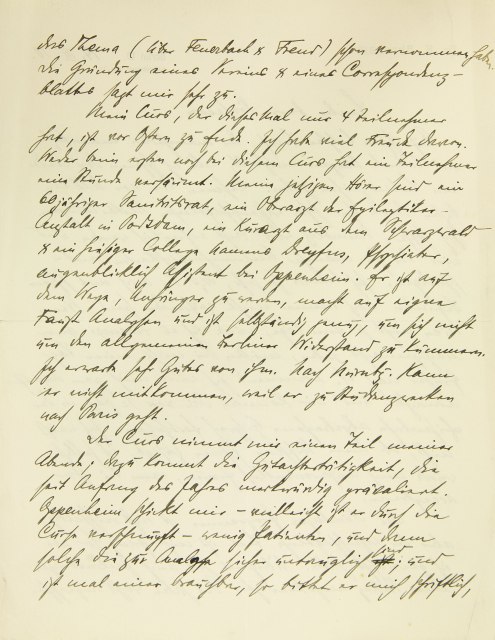 das Thema (über Feuerbach & Freud) schon vernommen haben.
Die Gründung eines Vereins & eines Correspondenz-
blatts sagt mir sehr zu.
Mein Curs, der diesesmal nur 4 Teilnehmer
hat, ist vor Ostern zu Ende. Ich habe viel Freude davon.
Weder beim ersten noch bei diesem Curs hat ein Teilnehmer
eine Stunde versäumt. Meine jetzigen Hörer sind ein
60jähriger Sanitätsrat, ein Oberarzt der Epileptiker-
anstalt in Potsdam, ein Kurarzt aus dem Schwarzwald
& ein hiesiger College namens Dreyfus, Psychiater,
augenblicklich Assistent bei Oppenheim. Er ist auf
dem Wege, Anhänger zu werden, macht auf eigne
Faust Analysen und ist selbständig genug, um sich nicht
um den allgemeinen Berliner Widerstand zu kümmern.
Ich erwarte sehr Gutes von ihm. Nach Nürnbg. kann
er nicht mitkommen, weil er zu Studienzwecken
nach Paris geht.
Der Curs nimmt mir einen Teil meiner
Abende; dazu kommt die Gutachtertätigkeit, die
seit Anfang des Jahres merkwürdig prävaliert.
Oppenheim schickt mir – vielleicht ist er durch die
Curse verschnupft – wenig Patienten, und dann
solche die zur Analyse sicher untauglich sind; und
ist mal einer brauchbar, so bittet er mich schriftlich,